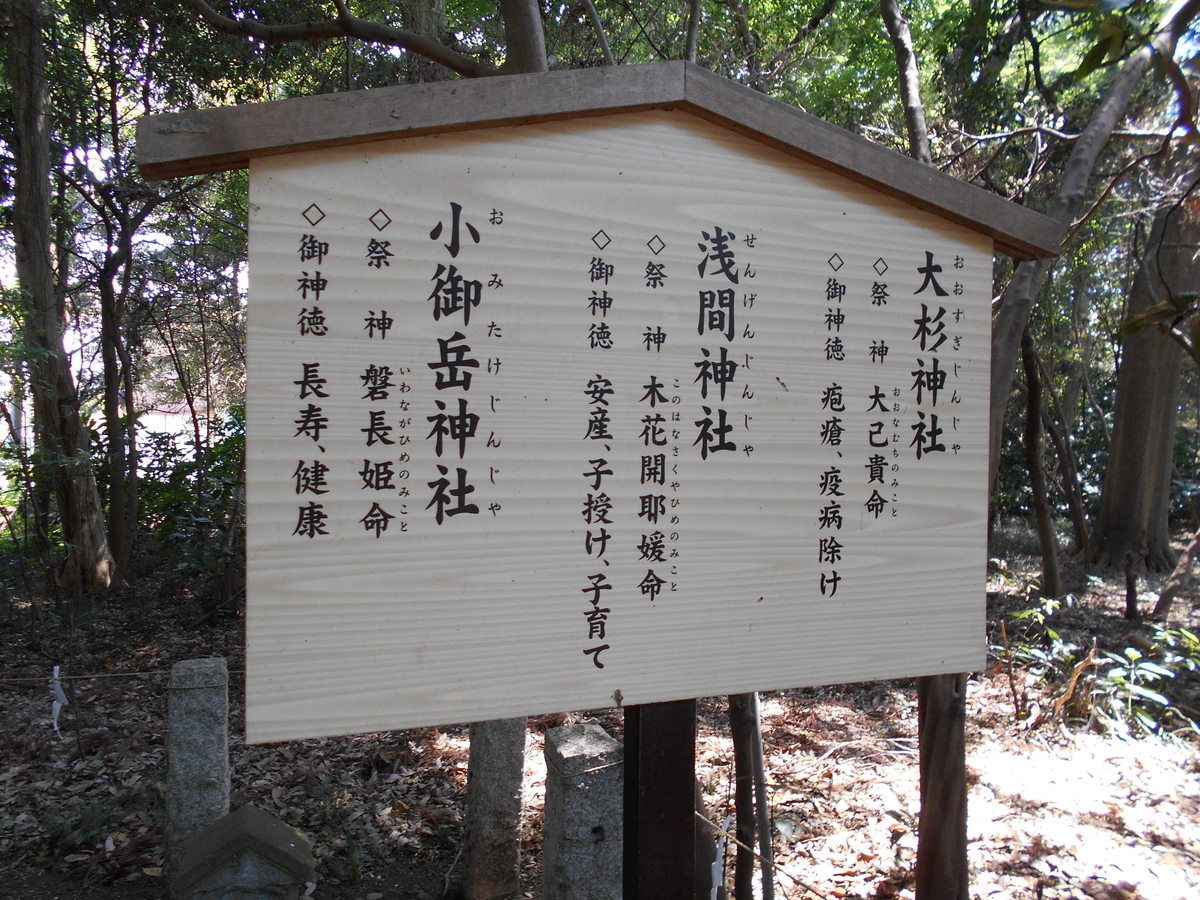 大杉神社
おおすぎじんじゃ
◇祭 神 大己貴命
おおなむちのみこと
◇御神徳 疱瘡、疫病除け
浅間神社
せんげんじんじゃ
◇祭 神 木花開耶媛命
このはなさくやひめのみこと
◇御神徳 安産、子授け、子育て
小御岳神社
おみたけじんじゃ
◇祭 神 磐長姫命
いわながひめのみこと
◇御神徳 長寿、健康